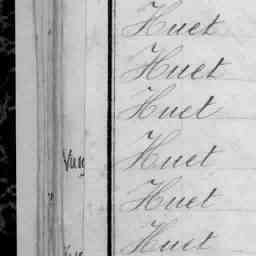 Huet
Huet
Huet
Huet
Huet
Huet